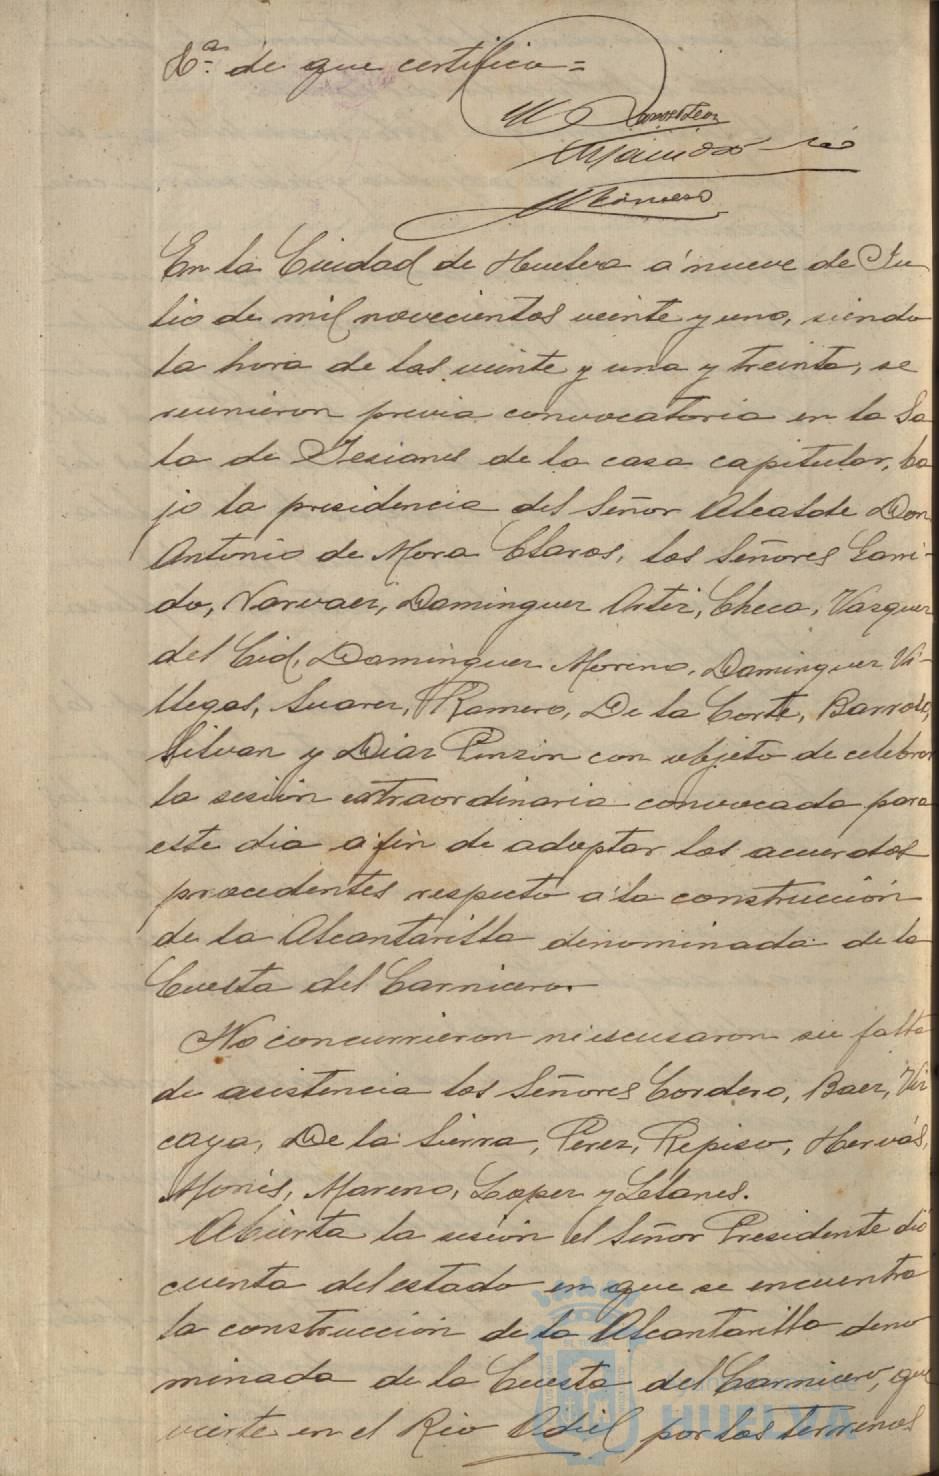 Sª. de que certifico =
En la Ciudad de Huelva á nueve de Ju
lio de mil novecientos veinte y uno, siendo
la hora de las veinte y una y treinta, se
reunieron previa convocatoria en la Sa
la de Sesiones de la casa capitular, ba
jo la presidencia del Señor Alcalde Don
Antonio de Mora Claros, los Señores Garri-
do, Narvaez, Dominguez Ortiz, Checa, Vazquez
del Cid, Dominguez Moreno, Dominguez Vi-
llegas, Suarez, Romero, De la Corte, Barroso,
Silvan y Diaz Pinzón con objeto de celebrar
la sesión extraordinaria convocada para
este dia a fin de adoptar los acuerdos
procedentes respecto á la construcción
de la Alcantarilla denominada de la
Cuesta del Carnicero.
No concurrieron ni escusaron su falta
de asistencia los Señores Cordero, Baez, Viz
caya, De la Sierra, Perez, Repiso, Hervás,
Monís, Moreno, Lopez y
Abierta la sesión el Señor Presidente dió
cuenta del estado en que se encuentra
la construcción de la Alcantarilla deno
minada de la Cuesta del Carnicero, que
vierte en el Rio Odiel por los terrenos
Ayuntamiento de
HUELVA